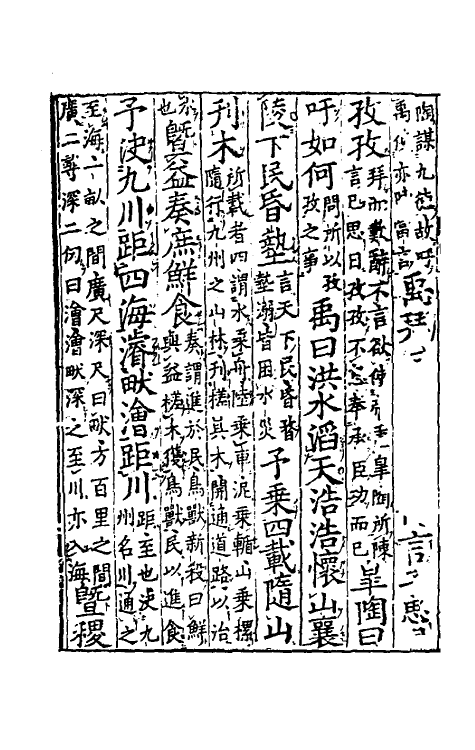 陶謨九德故呼禹使亦當言禹言思
孜孜拜而歎辭不言欲使帝重皐陶所陳言已思日孜孜不怠奉承臣功而已皐陶曰
吁如何問所以孜孜之事禹曰洪水滔天浩浩懷山襄
陵下民昏墊言天下民昏瞀墊溺皆困水災予乘四載隨山
刋木所載者四謂水乘舟陸乘車泥乘輴山乘樏隨行九州之山林刋槎其木開通道路以治
水也曁益奏庶鮮食奏謂進於民鳥獸新殺曰鮮與益槎木獲鳥獸民以進食
予決九川距四海濬畎澮距川距至也決九州名川通之
至海一畝之間廣尺深尺曰畎方百里之間廣二尋深二仞曰澮澮畎深之至川亦入海曁稷